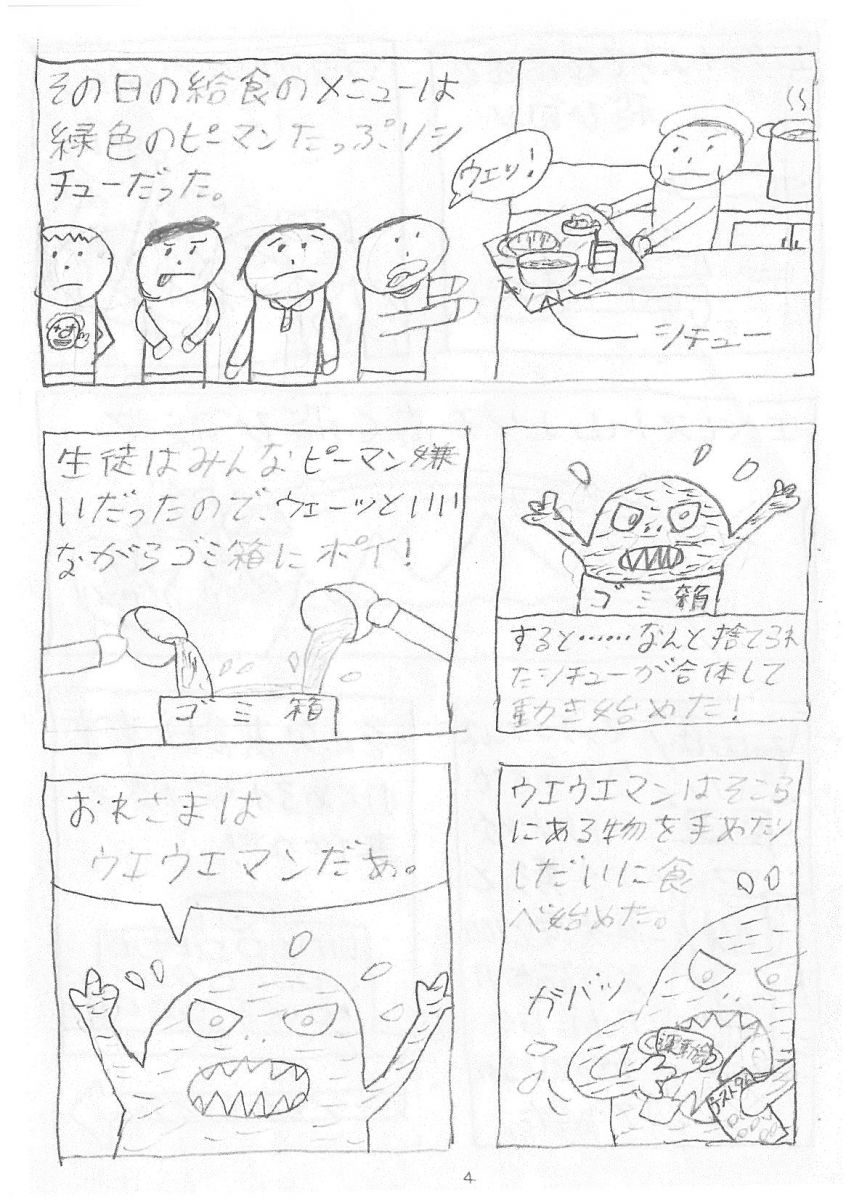 その日の給食のメニューは
緑色のピーマンたっぷりシ
チューだった。
ウエッ!
シチュー
生徒はみんなピーマン嫌
いだったので、ウエーッといい
ながらゴミ箱にポイ!
ゴミ箱
ゴミ箱
すると……なんと捨てられ
たシチューが合体して
動き始めた!
おれさまは
ウエウエマンだぁ。
ウエウエマンはそこら
にある物を手あたり
しだいに食
べ始めた。
ガバッ
4